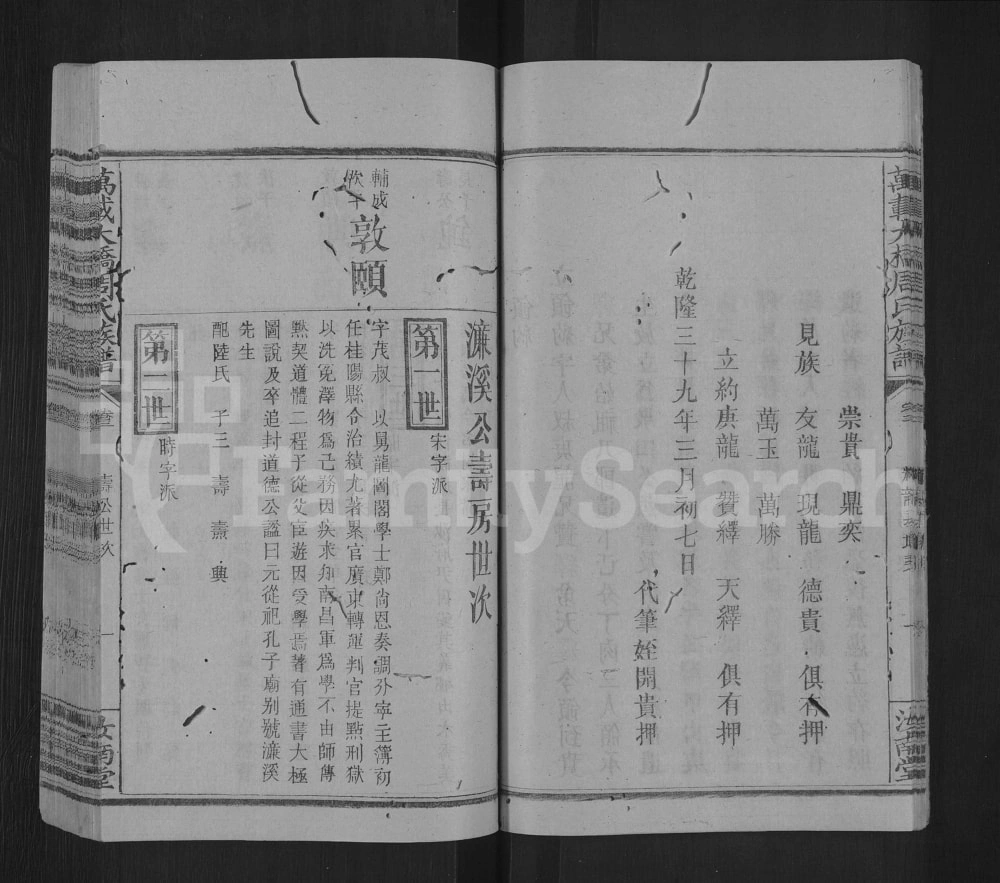 崇貴 鼎奕
見族 友龍 現龍 德貴 俱有押
萬玉 萬勝
立約庚龍 贊繹 天繹 俱有押
乾隆三十九年三月初七日
代筆姪開貴押
汝南堂
濂溪公壽房世次
輔成
次子 敦頤
第一世 宋字派
字茂叔 以舅龍圖閣學士鄭尚恩奏調分寧主簿初
任桂陽縣令治績尤著累官廣東轉運判官提點刑獄
以洗冤澤物爲己務因疾求知南昌軍爲學不由師傳
黙契道體二程子從父宦遊因受學焉著有通書大極
圖說及卒追封道德公謚曰元從祀孔子廟别號濂溪
先生
配陸氏 子三 壽 燾 興
第二世 時字派
萬載大橋周氏族譜
壽公世次
一
汝南堂
FamilySearch